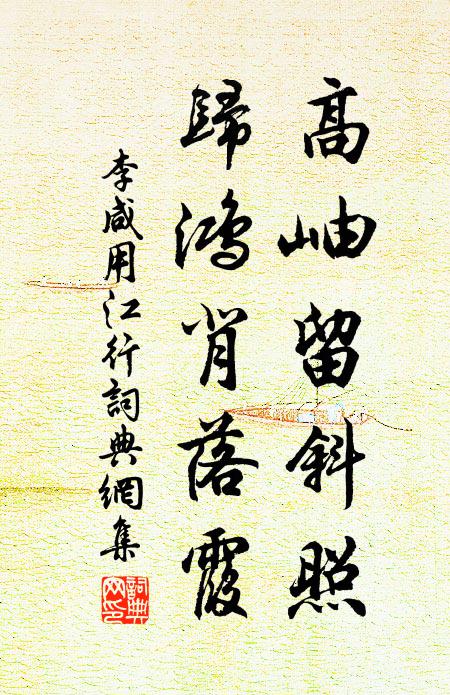 高岫留斜照
歸鴻背落霞
李咸用江行詞典網集
詞典
网印